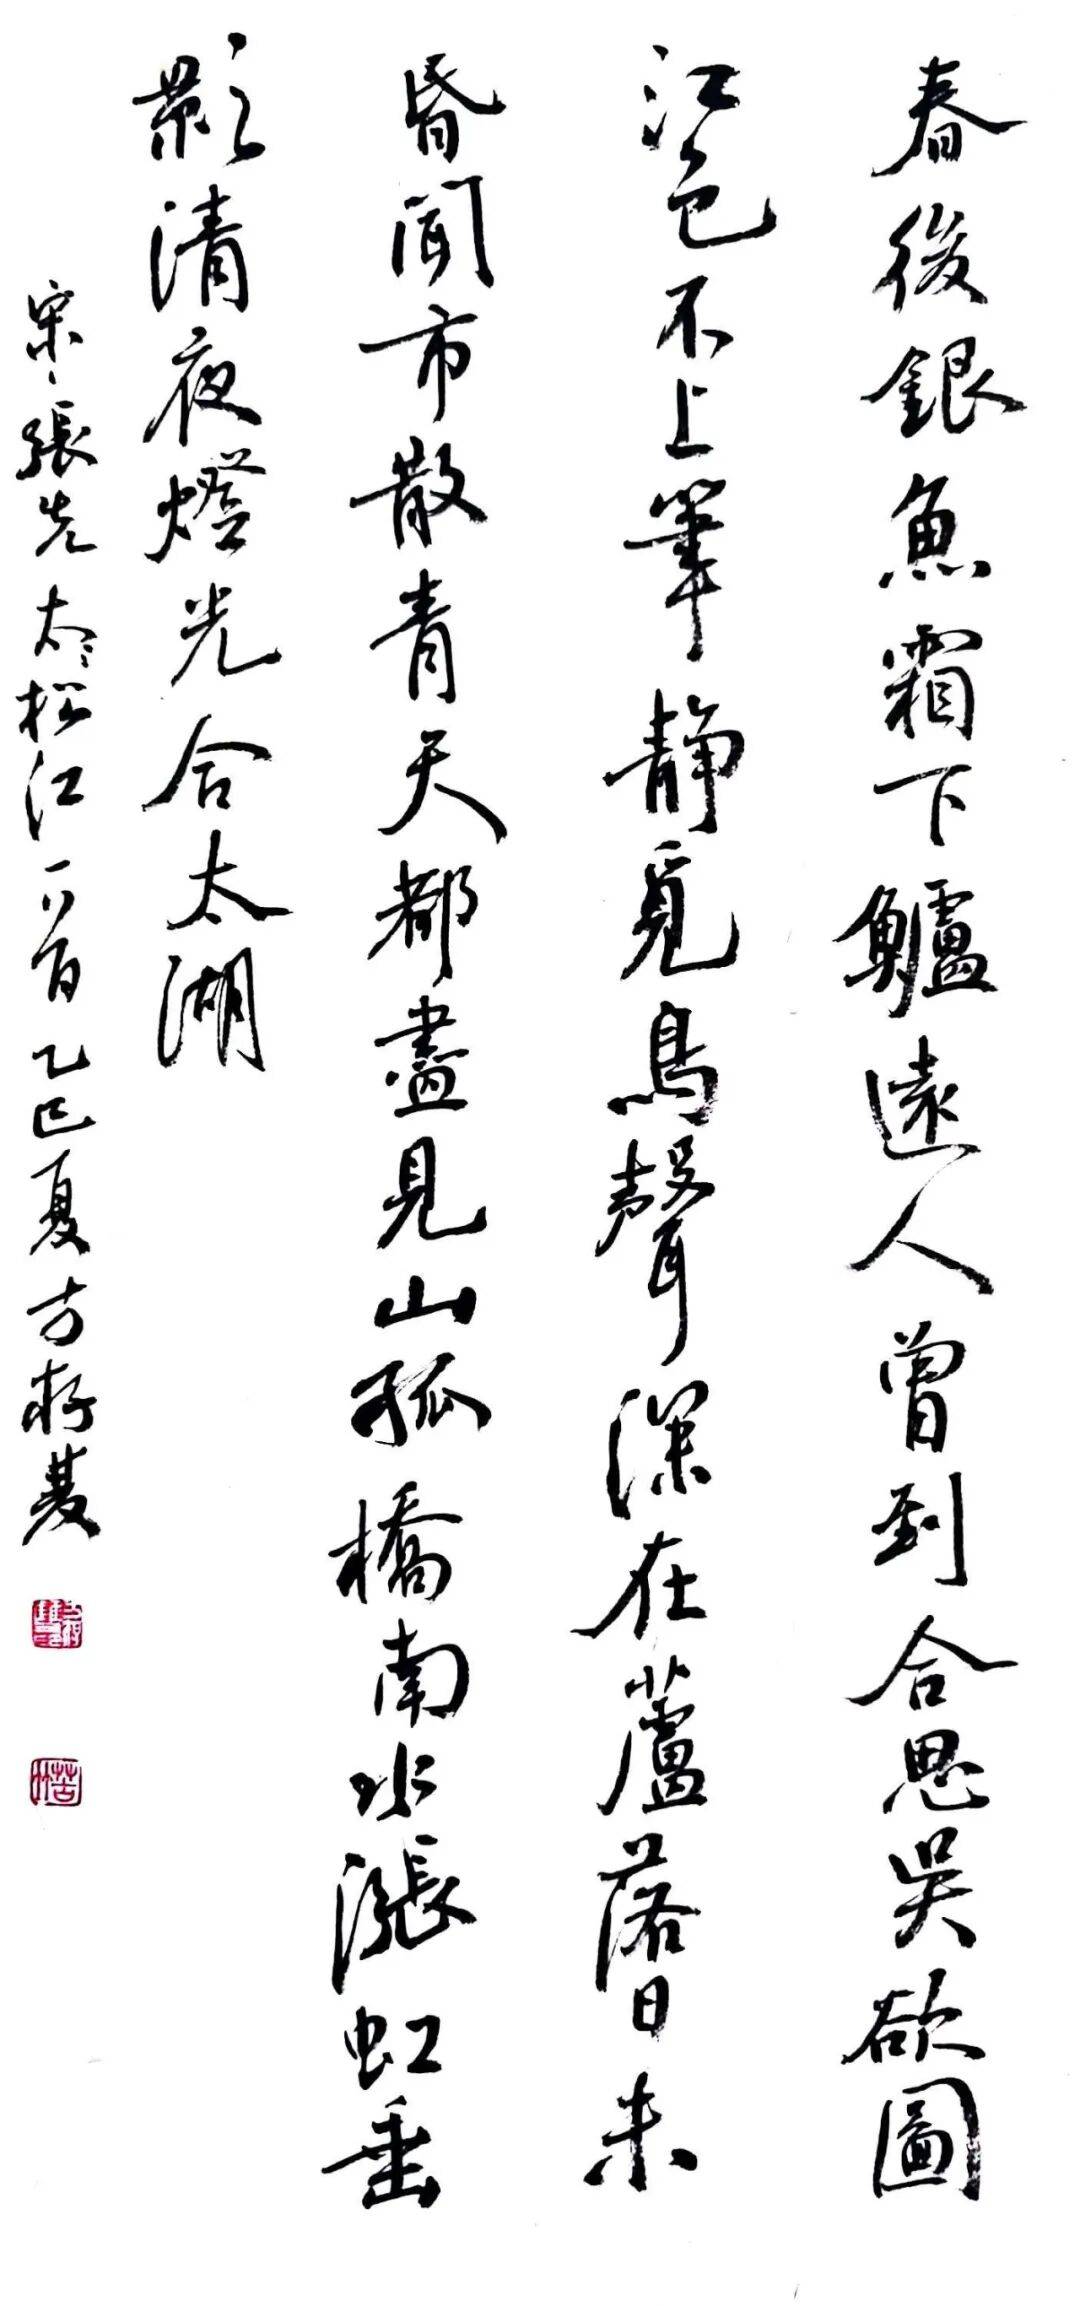 春後銀魚霜下鱸遠人曾到合思吳欲圖
江色不上筆靜覓鳥聲深在蘆落日未
昏聞市散青天都盡見山孤橋南水漲虹垂
影清夜燈光合太湖
宋張先松江一首乙巳夏方存